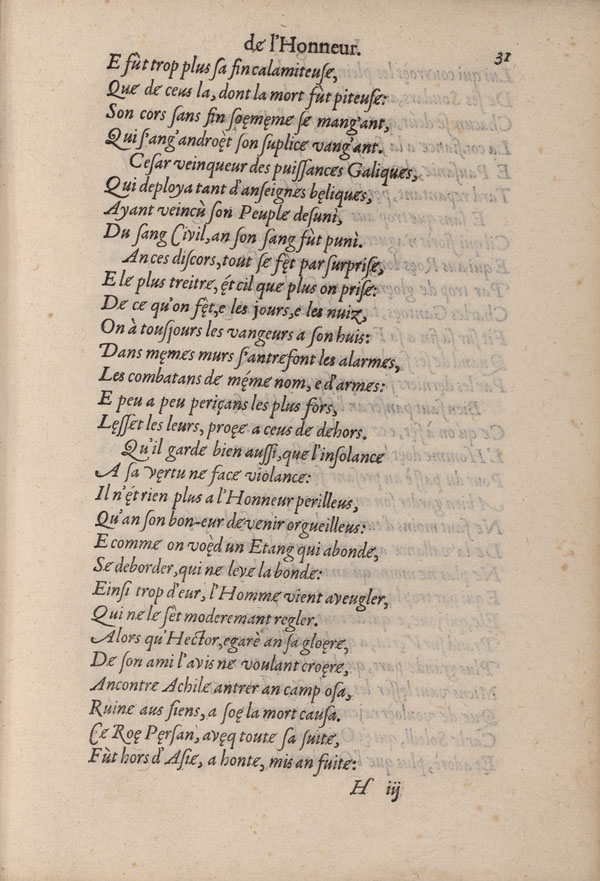 de l'Honneur.
31
E fût trop plus sa fin calamiteuse,
Que de ceus la, dont la mort fût piteuse:
Son cors sans fin soęmęme se mang'ant,
Qui s'ang'androęt son suplice vang'ant.
Cesar veinqueur des puissances Galiques,
Qui deploya tant d'anseignes bęliques,
Ayant veincù son Peuple desuni,
Du sang Civil, an son sang fùt punì.
An ces discors, tout se fęt par surprise,
E le plus treitre, ét cil que plus on prise:
De ce qu'on fęt, e les jours, e les nuiz,
On à tousjours les vangeurs a son huis:
Dans męmes murs s'antrefont les alarmes,
Les combatans de méme nom, e d'armes:
E peu a peu periçans les plus fors,
Lęsset les leurs, proęe a ceus de dehors.
Qu'il garde bien aussi, que l'insolance
A sa vęrtu ne face violance:
Il n'ét rien plus a l'Honneur perilleus,
Qu'an son bon-eur devenir orgueilleus:
E comme on voęd un Etang qui abonde,
Se deborder, qui ne leve la bonde:
Einsi trop d'eur, l'Homme vient aveugler,
Qui ne le sęt moderemant regler.
Alors qu'Hector, egarè an sa gloęre,
De son ami l'avis ne voulant croęre,
Ancontre Achile antrer an camp osa,
Ruine aus siens, a soę la mort causa.
Ce Roę Pęrsan, avęq toute sa suite,
Fùt hors d'Asie, a honte, mis an fuite:
H iij